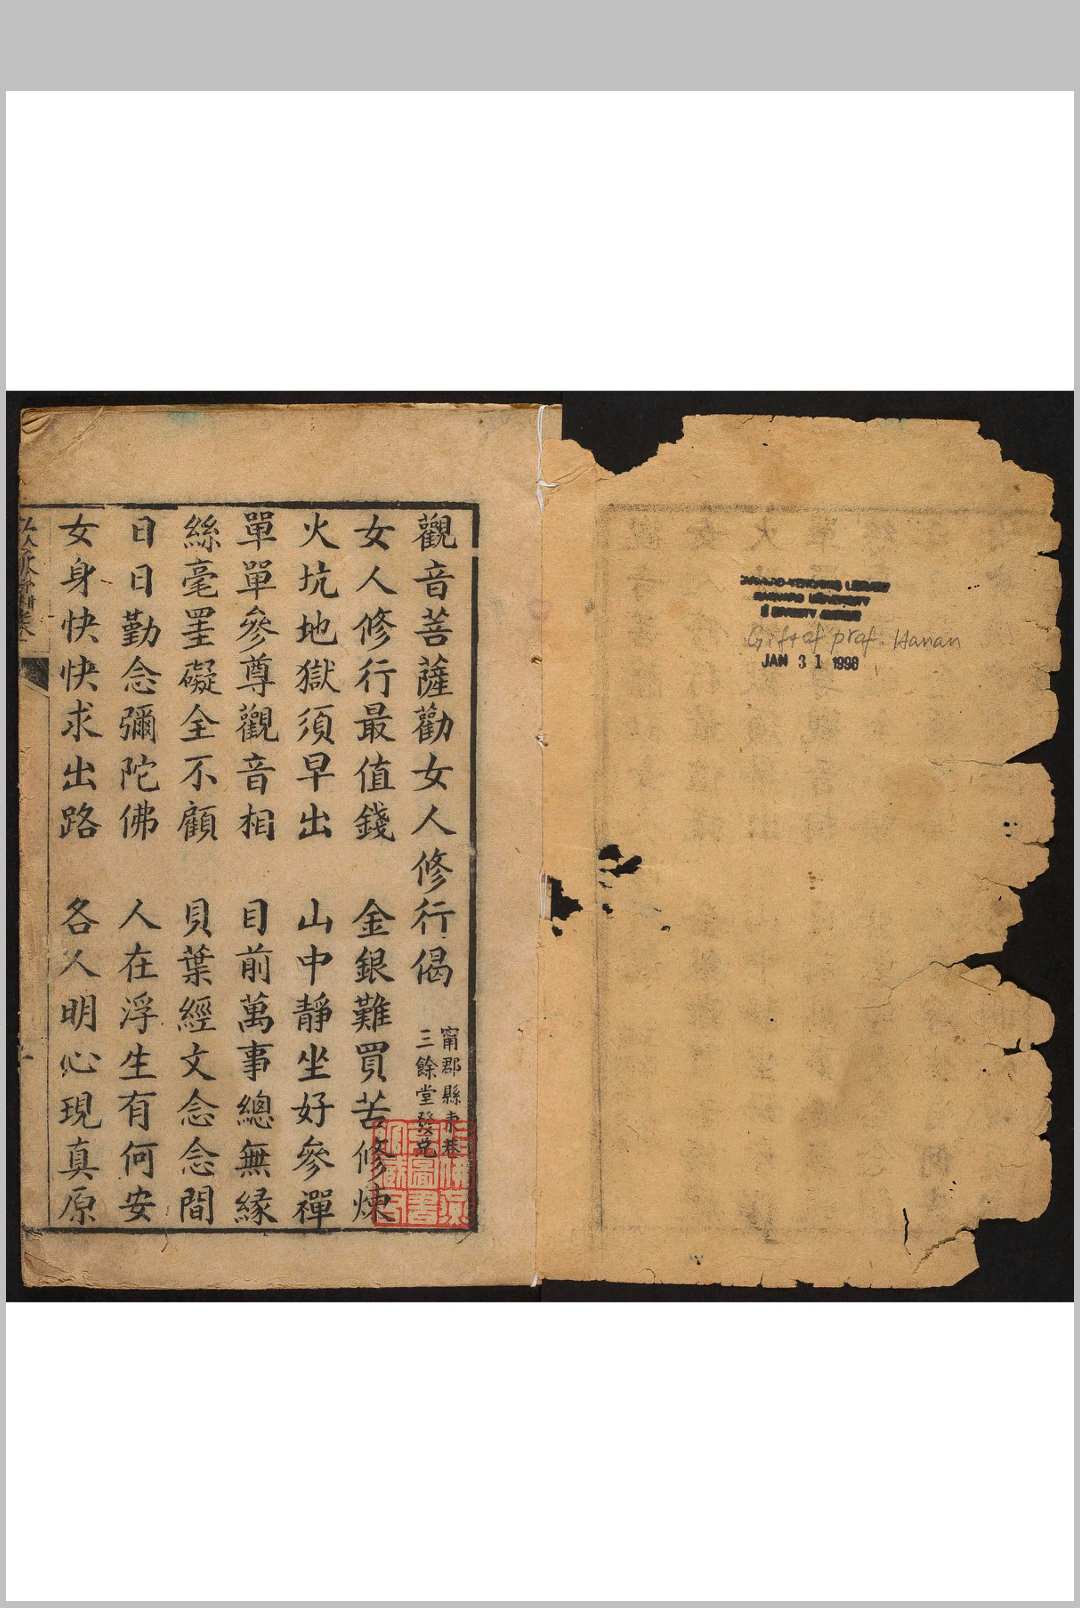 HARVARD-YENCHING LIBRARY
HARVARD UNIVERSITY
Gift of prof. Hanan
JAN 31 1996
觀音菩薩勸女人修行偈
甯郡縣東巷
三餘堂發兌
女人修行最值錢 金銀難買苦修煉
火坑地獄須早出 山中靜坐好參禪
單單參尊觀音相 目前萬事總無緣
絲毫罣礙全不顧 貝葉經文念念間
日日勤念彌陀佛 人在浮生有何安
女身快快求出路 各人明心現真原